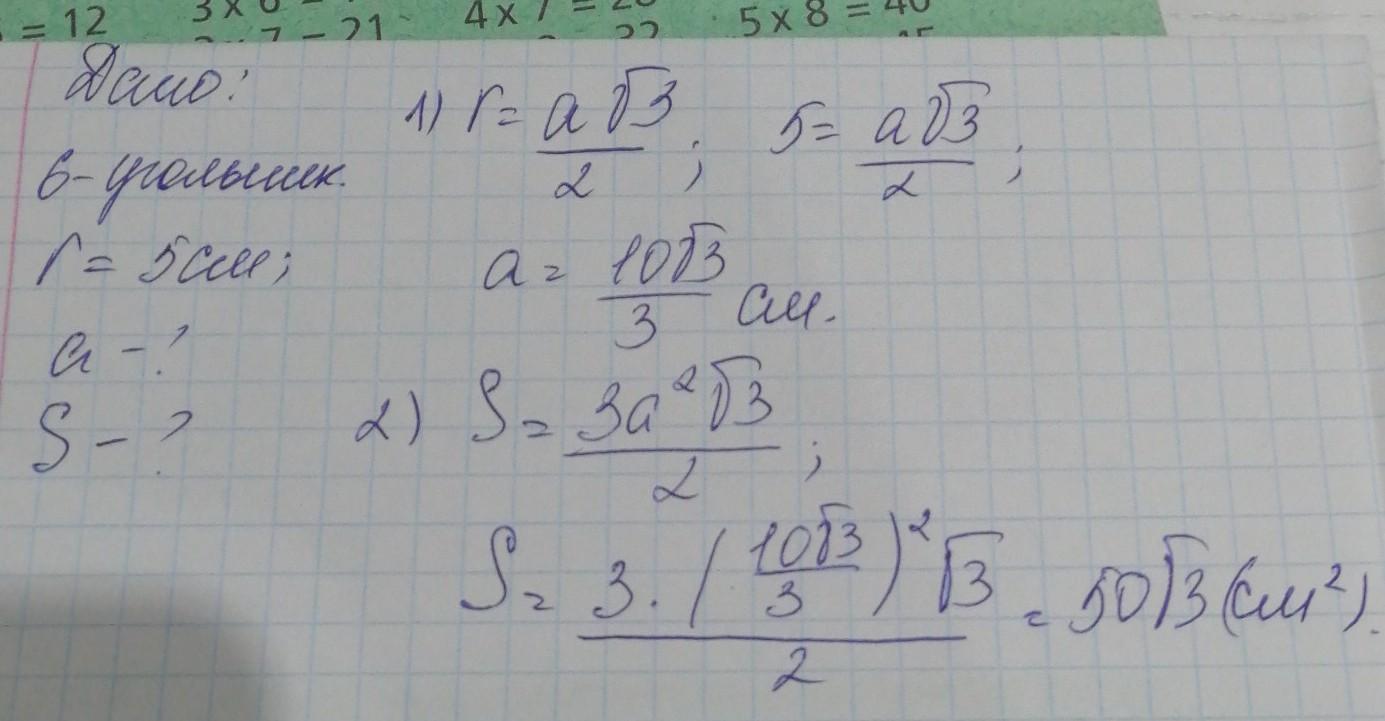 = 12 3 x 6 = 4 x 7 = 28 5 x 8 = 40
Дано:
6-угольник.
r = 5см;
a - ?
S - ?
1) r = a√3/2; 5 = a√3/2;
a = 10√3/3 см.
2) S = 3a²√3/2;
S = 3·(10√3/3)²√3/2 = 50√3 (см²).